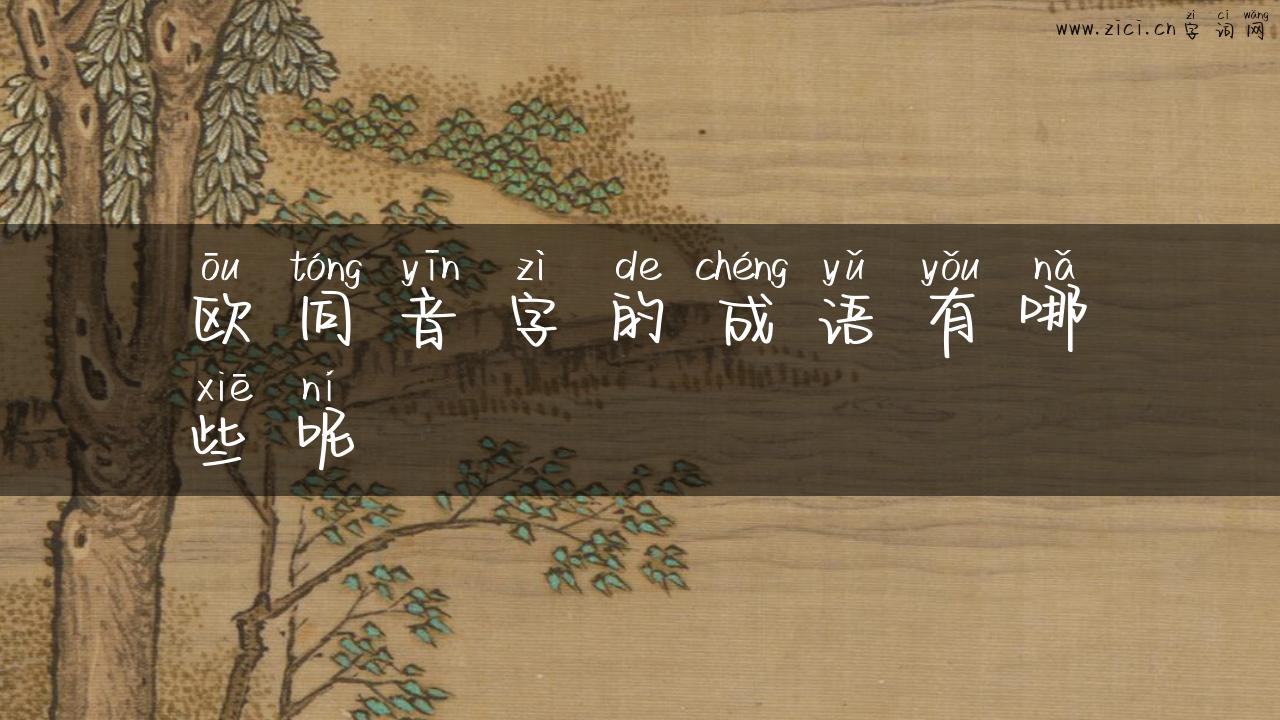 zì cí wǎng
www.zici.cn 字 词 网
ōu tóng yīn zì de chéng yǔ yǒu nǎ
欧 同 音 字 的 成 语 有 哪
xiē ní
些 呢